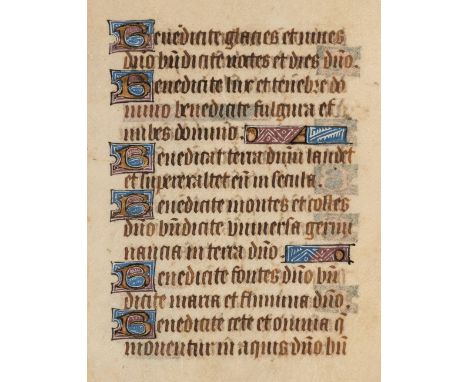 Benedicite glacies et niues
dño bñdicite noctes et dies dño.
Benedicite lux et tenebre do
mino benedicite fulgura et
nubes domino.
Benedicat terra dñum laudet
et superexaltet eũ in secula.
Benedicite montes et colles
dño bñdicite vniuersa germi
nancia in terra dño.
Benedicite fontes dño bñ
dicite maria et flumina dño.
Benedicite cete et omnia q̃
mouentur in aquis dño bñ